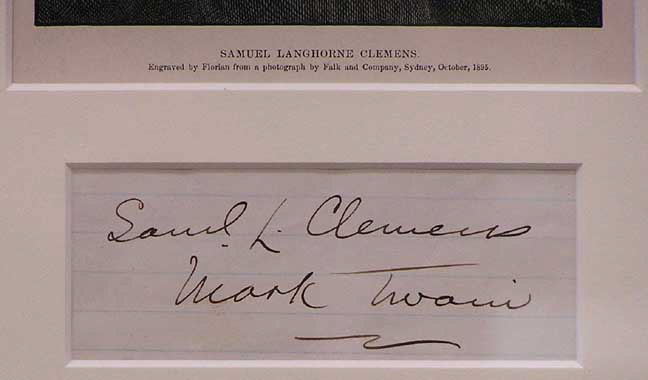 SAMUEL LANGHORNE CLEMENS.
Engraved by Florian from a photograph by Falk and Company, Sydney, October, 1895.
Saml. L. Clemens
Mark Twain